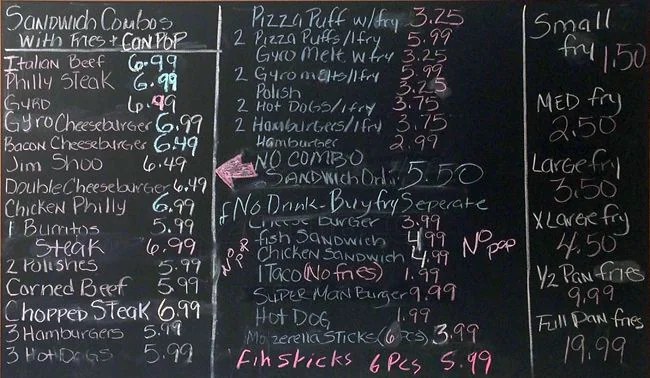 SANDWICH COMBOS
WITH FRIES + CAN POP
ITALIAN BEEF 6.99
PHILLY STEAK 6.99
GYRO 6.99
GYRO CHEESEBURGER 6.99
BACON CHEESEBURGER 6.49
JIM SHOO 6.49
DOUBLE CHEESEBURGER 6.49
CHICKEN PHILLY 6.99
1 BURRITOS 5.99
STEAK 6.99
2 POLISHES 5.99
CORNED BEEF 5.99
CHOPPED STEAK 6.99
3 HAMBURGERS 5.99
3 HOT DOGS 5.99
PIZZA PUFF W/ fry 3.25
2 PIZZA PUFFS/1 fry 5.99
GYRO MELT W fry 3.25
2 GYRO melts/1 fry 5.99
POLISH 3.25
2 HOT DOGS/1 fry 3.75
2 HAMBURGERS/1 fry 3.75
HAMBURGER 2.99
NO COMBO
SANDWICH ONLY 5.50
NO DRINK - Buy fry Seperate
CHEESE BURGER 3.99
fish SANDWICH 4.99
CHICKEN SANDWICH 4.99
NO POP
NO POP
1 TACO (NO fries) 1.99
SUPER MAN BURGER 9.99
HOT DOG 1.99
MOZZERELLA STICKS (6 PCS) 3.99
FIH STICKS 6 PCS 5.99
Small
fry 1.50
MED fry
2.50
Large fry
3.50
X Large fry
4.50
1/2 PAN-fries
9.99
Full PAN-fries
19.99